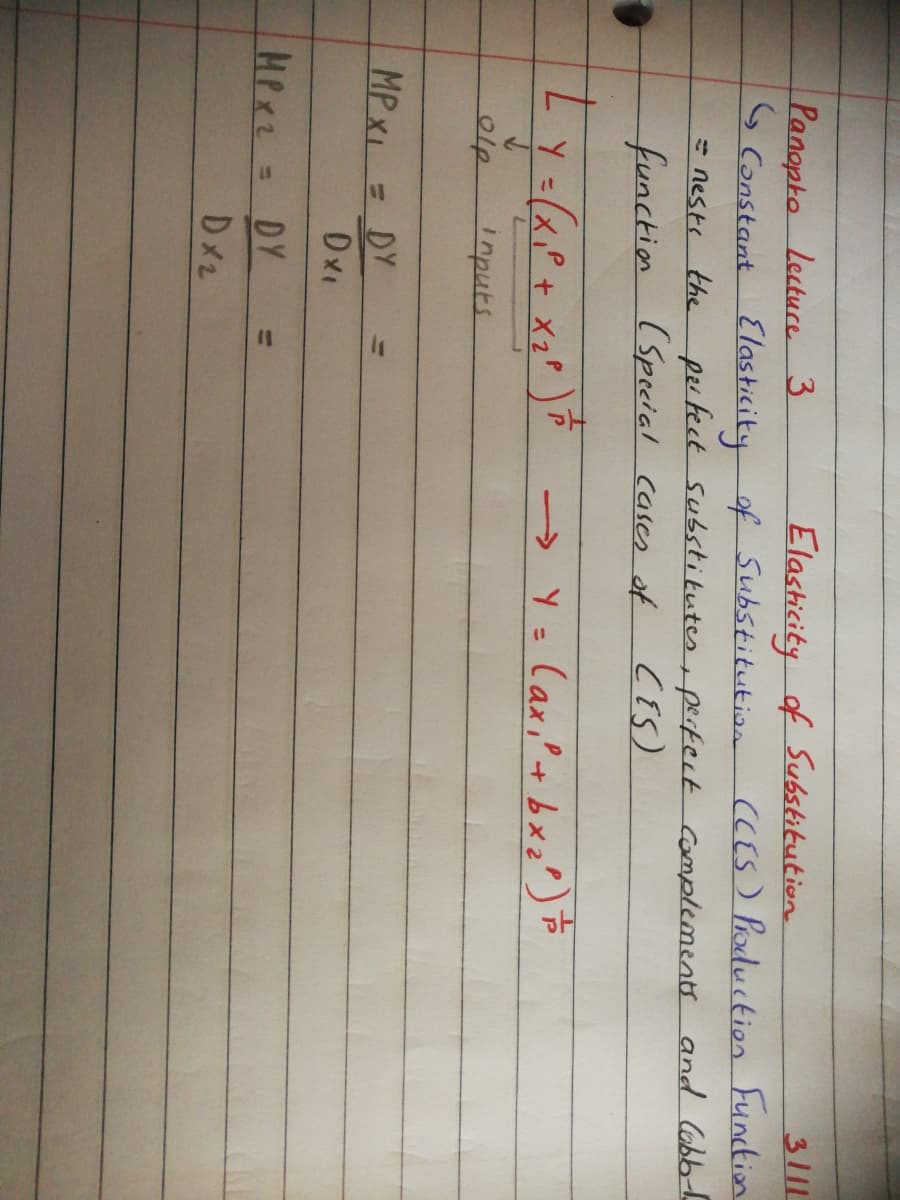 Panopto Lecture 3 Elasticity of Substitution 3/11
↳ Constant Elasticity of Substitution (CES) Production Function
= nests the perfect substitutes, perfect complements and Cobb-
function (Special cases of CES)
L Y = (x₁ᴾ + x₂ᴾ)^(1/P) → Y = (ax₁ᴾ + bx₂ᴾ)^(1/P)
↓
o/p inputs
MPx₁ = DY/Dx₁ =
MPx₂ = DY/Dx₂ =